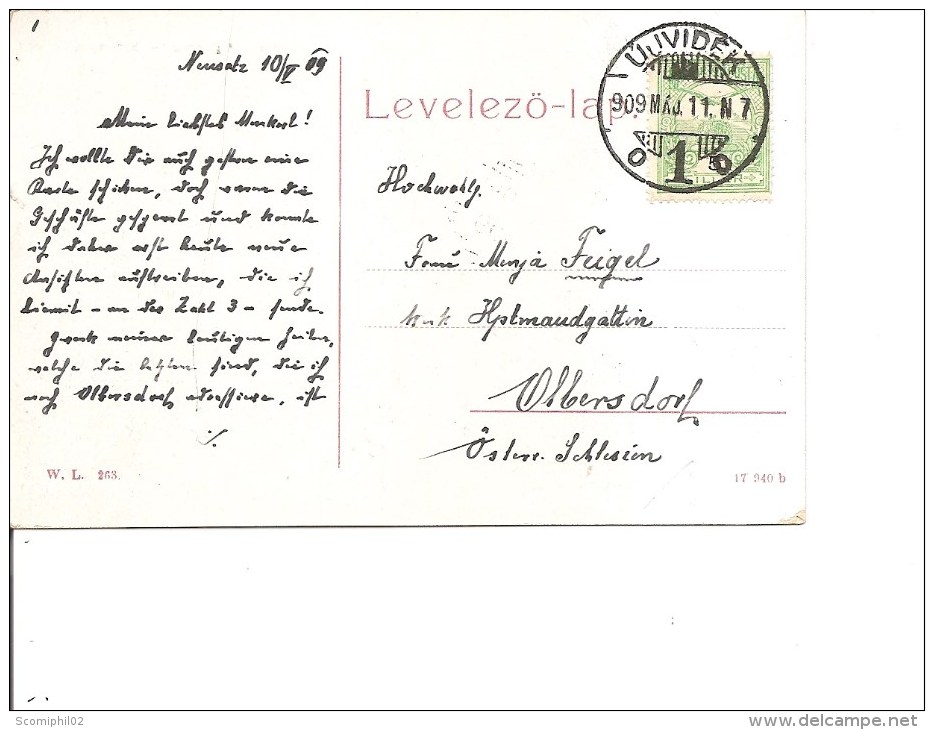 Neusatz 10/V 09
Mein liebstes Mukerl!
Ich wollte Dir auch gestern eine
Karte schicken, doch waren die
Geschäfte gesperrt und konnte
ich daher erst heute neue
Ansichten auftreiben, die ich
hiemit – an der Zahl 3 – sende.
Zweck meiner heutigen Zeilen,
welche die letzten sind, die ich
nach Olbersdorf adressiere, ist
./.
W. L. 263.
Levelező-lap.
ÚJVIDÉK
909 MÁJ. 11. N 7
1
Hochwohlg.
Feigel
k.u.k. Hptmannsgattin
Olbersdorf
Österr. Schlesien
17 940 b
Scomiphil02
www.delcampe.net